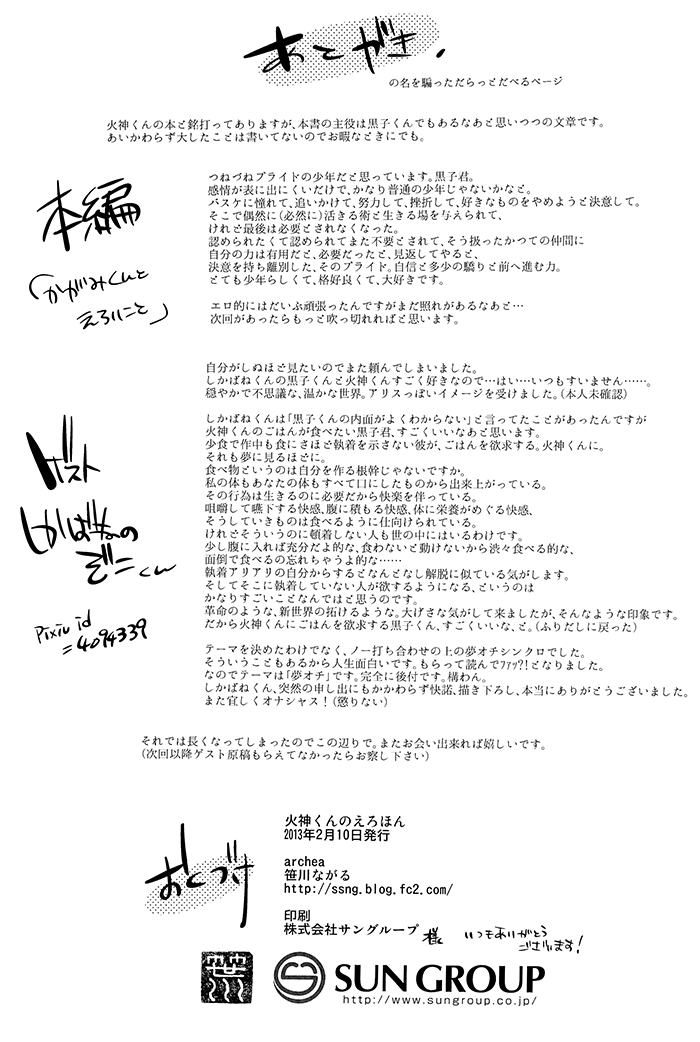 あとがき。
の名を騙っただらっとだべるページ
火神くんの本と銘打ってありますが、本書の主役は黒子くんでもあるなあと思いつつの文章です。
あいかわらず大したことは書いてないのでお暇なときにでも。
本編
「かがみくんと
えろいこと」
つねづねプライドの少年だと思っています。黒子君。
感情が表に出にくいだけで、かなり普通の少年じゃないかなと。
バスケに憧れて、追いかけて、努力して、挫折して、好きなものをやめようと決意して。
そこで偶然に(必然に)活きる術と生きる場を与えられて、
けれど最後は必要とされなくなった。
認められたくて認められてまた不要とされて、そう扱ったかつての仲間に
自分の力は有用だと、必要だったと、見返してやると、
決意を持ち離別した、そのプライド。自信と多少の驕りと前へ進む力。
とても少年らしくて、格好良くて、大好きです。
エロ的にはだいぶ頑張ったんですがまだ照れがあるなあと…
次回があったらもっと吹っ切れればと思います。
ゲスト
しかばねの
ぞーくん
Pixiv id
=4094339
自分がしぬほど見たいのでまた頼んでしまいました。
しかばねくんの黒子くんと火神くんすごく好きなので…はい…いつもすいません……。
穏やかで不思議な、温かな世界。アリスっぽいイメージを受けました。(本人未確認)
しかばねくんは「黒子くんの内面がよくわからない」と言ってたことがあったんですが
火神くんのごはんが食べたい黒子君、すごくいいなあと思います。
少食で作中も食にさほど執着を示さない彼が、ごはんを欲求する。火神くんに。
それも夢に見るほどに。
食べ物というのは自分を作る根幹じゃないですか。
私の体もあなたの体もすべて口にしたものから出来上がっている。
その行為は生きるのに必要だから快楽を伴っている。
咀嚼して嚥下する快感、腹に積もる快感、体に栄養がめぐる快感、
そうしていきものは食べるように仕向けられている。
けれどそういうのに頓着しない人も世の中にはいるわけです。
少し腹に入れば充分だよ的な、食わないと動けないから渋々食べる的な、
面倒で食べるの忘れちゃうよ的な……
執着アリアリの自分からするとなんとなし解脱に似ている気がします。
そしてそこに執着していない人が欲するようになる、というのは
かなりすごいことなんではと思うのです。
革命のような、新世界の拓けるような。大げさな気がして来ましたが、そんなような印象です。
だから火神くんにごはんを欲求する黒子くん、すごくいいな、と。(ふりだしに戻った)
テーマを決めたわけでなく、ノー打ち合わせの上の夢オチシンクロでした。
そういうこともあるから人生面白いです。もらって読んでﾌｧｯ?!となりました。
なのでテーマは「夢オチ」です。完全に後付です。構わん。
しかばねくん、突然の申し出にもかかわらず快諾、描き下ろし、本当にありがとうございました。
また宜しくオナシャス！(懲りない)
それでは長くなってしまったのでこの辺りで。またお会い出来れば嬉しいです。
(次回以降ゲスト原稿もらえてなかったらお察し下さい)
おくづけ
火神くんのえろほん
2013年2月10日発行
archea
笹川ながる
http://ssng.blog.fc2.com/
印刷
株式会社サングループ 様 いつもありがとう
ございます！
SUN GROUP
http://www.sungroup.co.jp/